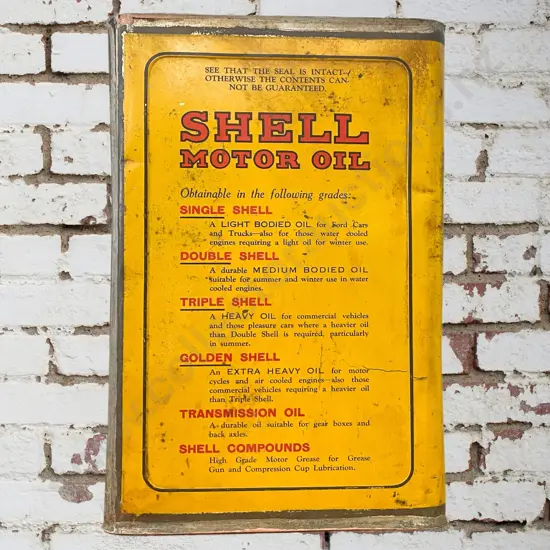 SEE THAT THE SEAL IS INTACT—
OTHERWISE THE CONTENTS CAN-
NOT BE GUARANTEED.
SHELL
MOTOR OIL
Obtainable in the following grades:
SINGLE SHELL
A LIGHT BODIED OIL for Ford Cars
and Trucks—also for those water cooled
engines requiring a light oil for winter use.
DOUBLE SHELL
A durable MEDIUM BODIED OIL
suitable for summer and winter use in water
cooled engines.
TRIPLE SHELL
A HEAVY OIL for commercial vehicles
and those pleasure cars where a heavier oil
than Double Shell is required, particularly
in summer.
GOLDEN SHELL
An EXTRA HEAVY OIL for motor
cycles and air cooled engines—also those
commercial vehicles requiring a heavier oil
than Triple Shell.
TRANSMISSION OIL
A durable oil suitable for gear boxes and
back axles.
SHELL COMPOUNDS
High Grade Motor Grease for Grease
Gun and Compression Cup Lubrication.